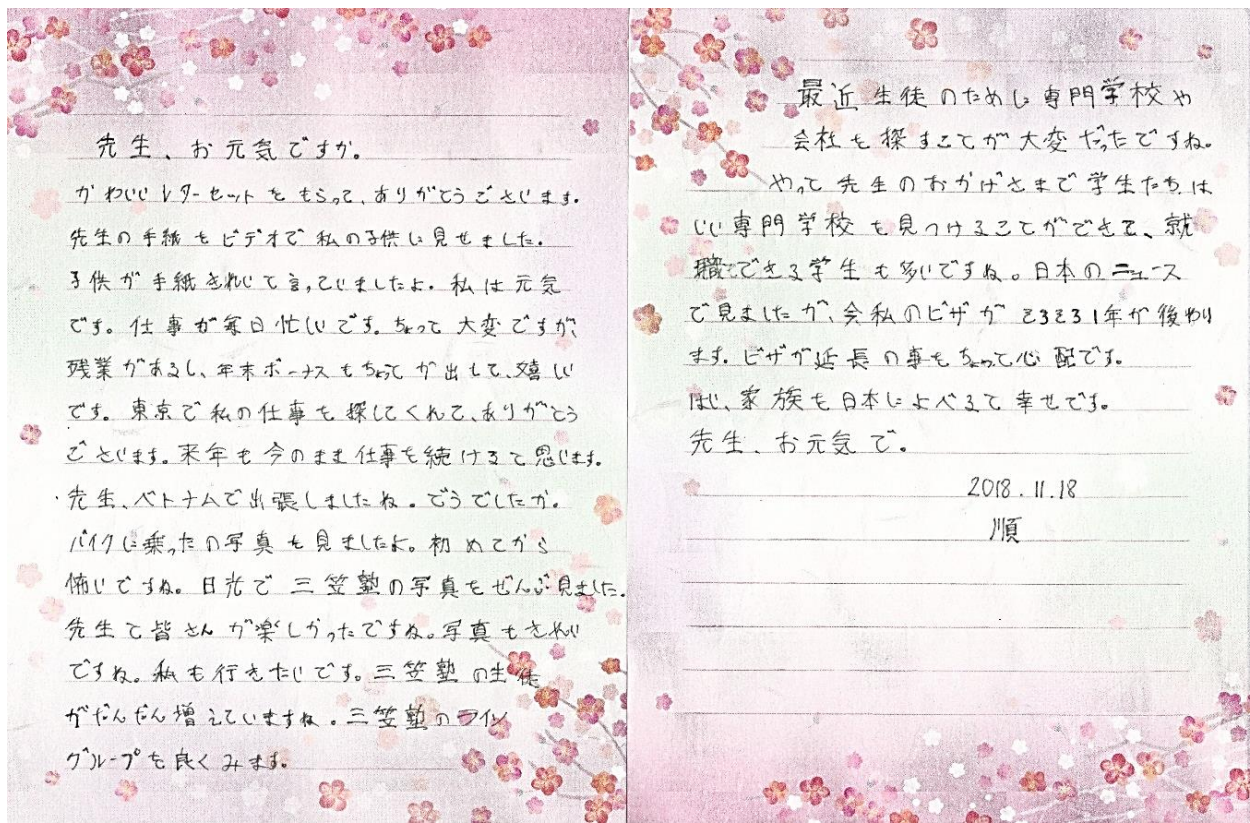 先生、お元気ですか。
かわいいレターセットをもらって、ありがとうございます。
先生の手紙もビデオで私の子供に見せました。
子供が手紙きれいて言っていましたよ。私は元気
です。仕事が毎日忙しいです。ちょって大変ですが、
残業があるし、年末ボーナスもちょってが出して、嬉しい
です。東京で私の仕事を探してくれて、ありがとう
ございます。来年も今のまま仕事を続けるて思います。
先生、ベトナムで出張しましたね。どうでしたか。
バイクに乗ったの写真も見ましたよ。初めてから
怖いですね。日光で三笠塾の写真もぜんぶ見ました。
先生て皆さんが楽しかったですね。写真もきれい
ですね。私も行きたいです。三笠塾の生徒
がだんだん増えていますね。三笠塾のライン
グループを良くみます。
最近生徒のために専門学校や
会社を探すことが大変だったですね。
やって先生のおかげさまで学生たちは
いい専門学校を見つけることができて、就
職できる学生も多いですね。日本のニュース
で見ましたが、会私のビザがそろそろ1年が後わり
ます。ビザが延長の事もちょって心配です。
はい、家族も日本によべるて幸せです。
先生、お元気で。
2018.11.18
順